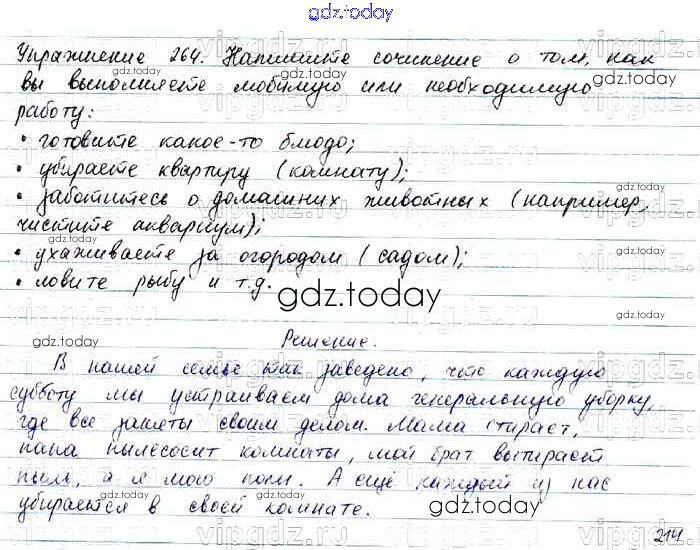 gdz.today
Упражнение 264. Напишите сочинение о том, как
вы выполняете любимую или необходимую
работу:
• готовите какое-то блюдо;
• убираете квартиру (комнату);
• заботитесь о домашних животных (например,
чистите аквариум);
• ухаживаете за огородом (садом);
• ловите рыбу и т.д.
gdz.today
Решение.
В нашей семье так заведено, что каждую
субботу мы устраиваем дома генеральную уборку,
где все заняты своим делом. Мама стирает,
папа пылесосит комнаты, мой брат вытирает
пыль, а я мою полы. А ещё каждый из нас
убирается в своей комнате.
gdz.today
214